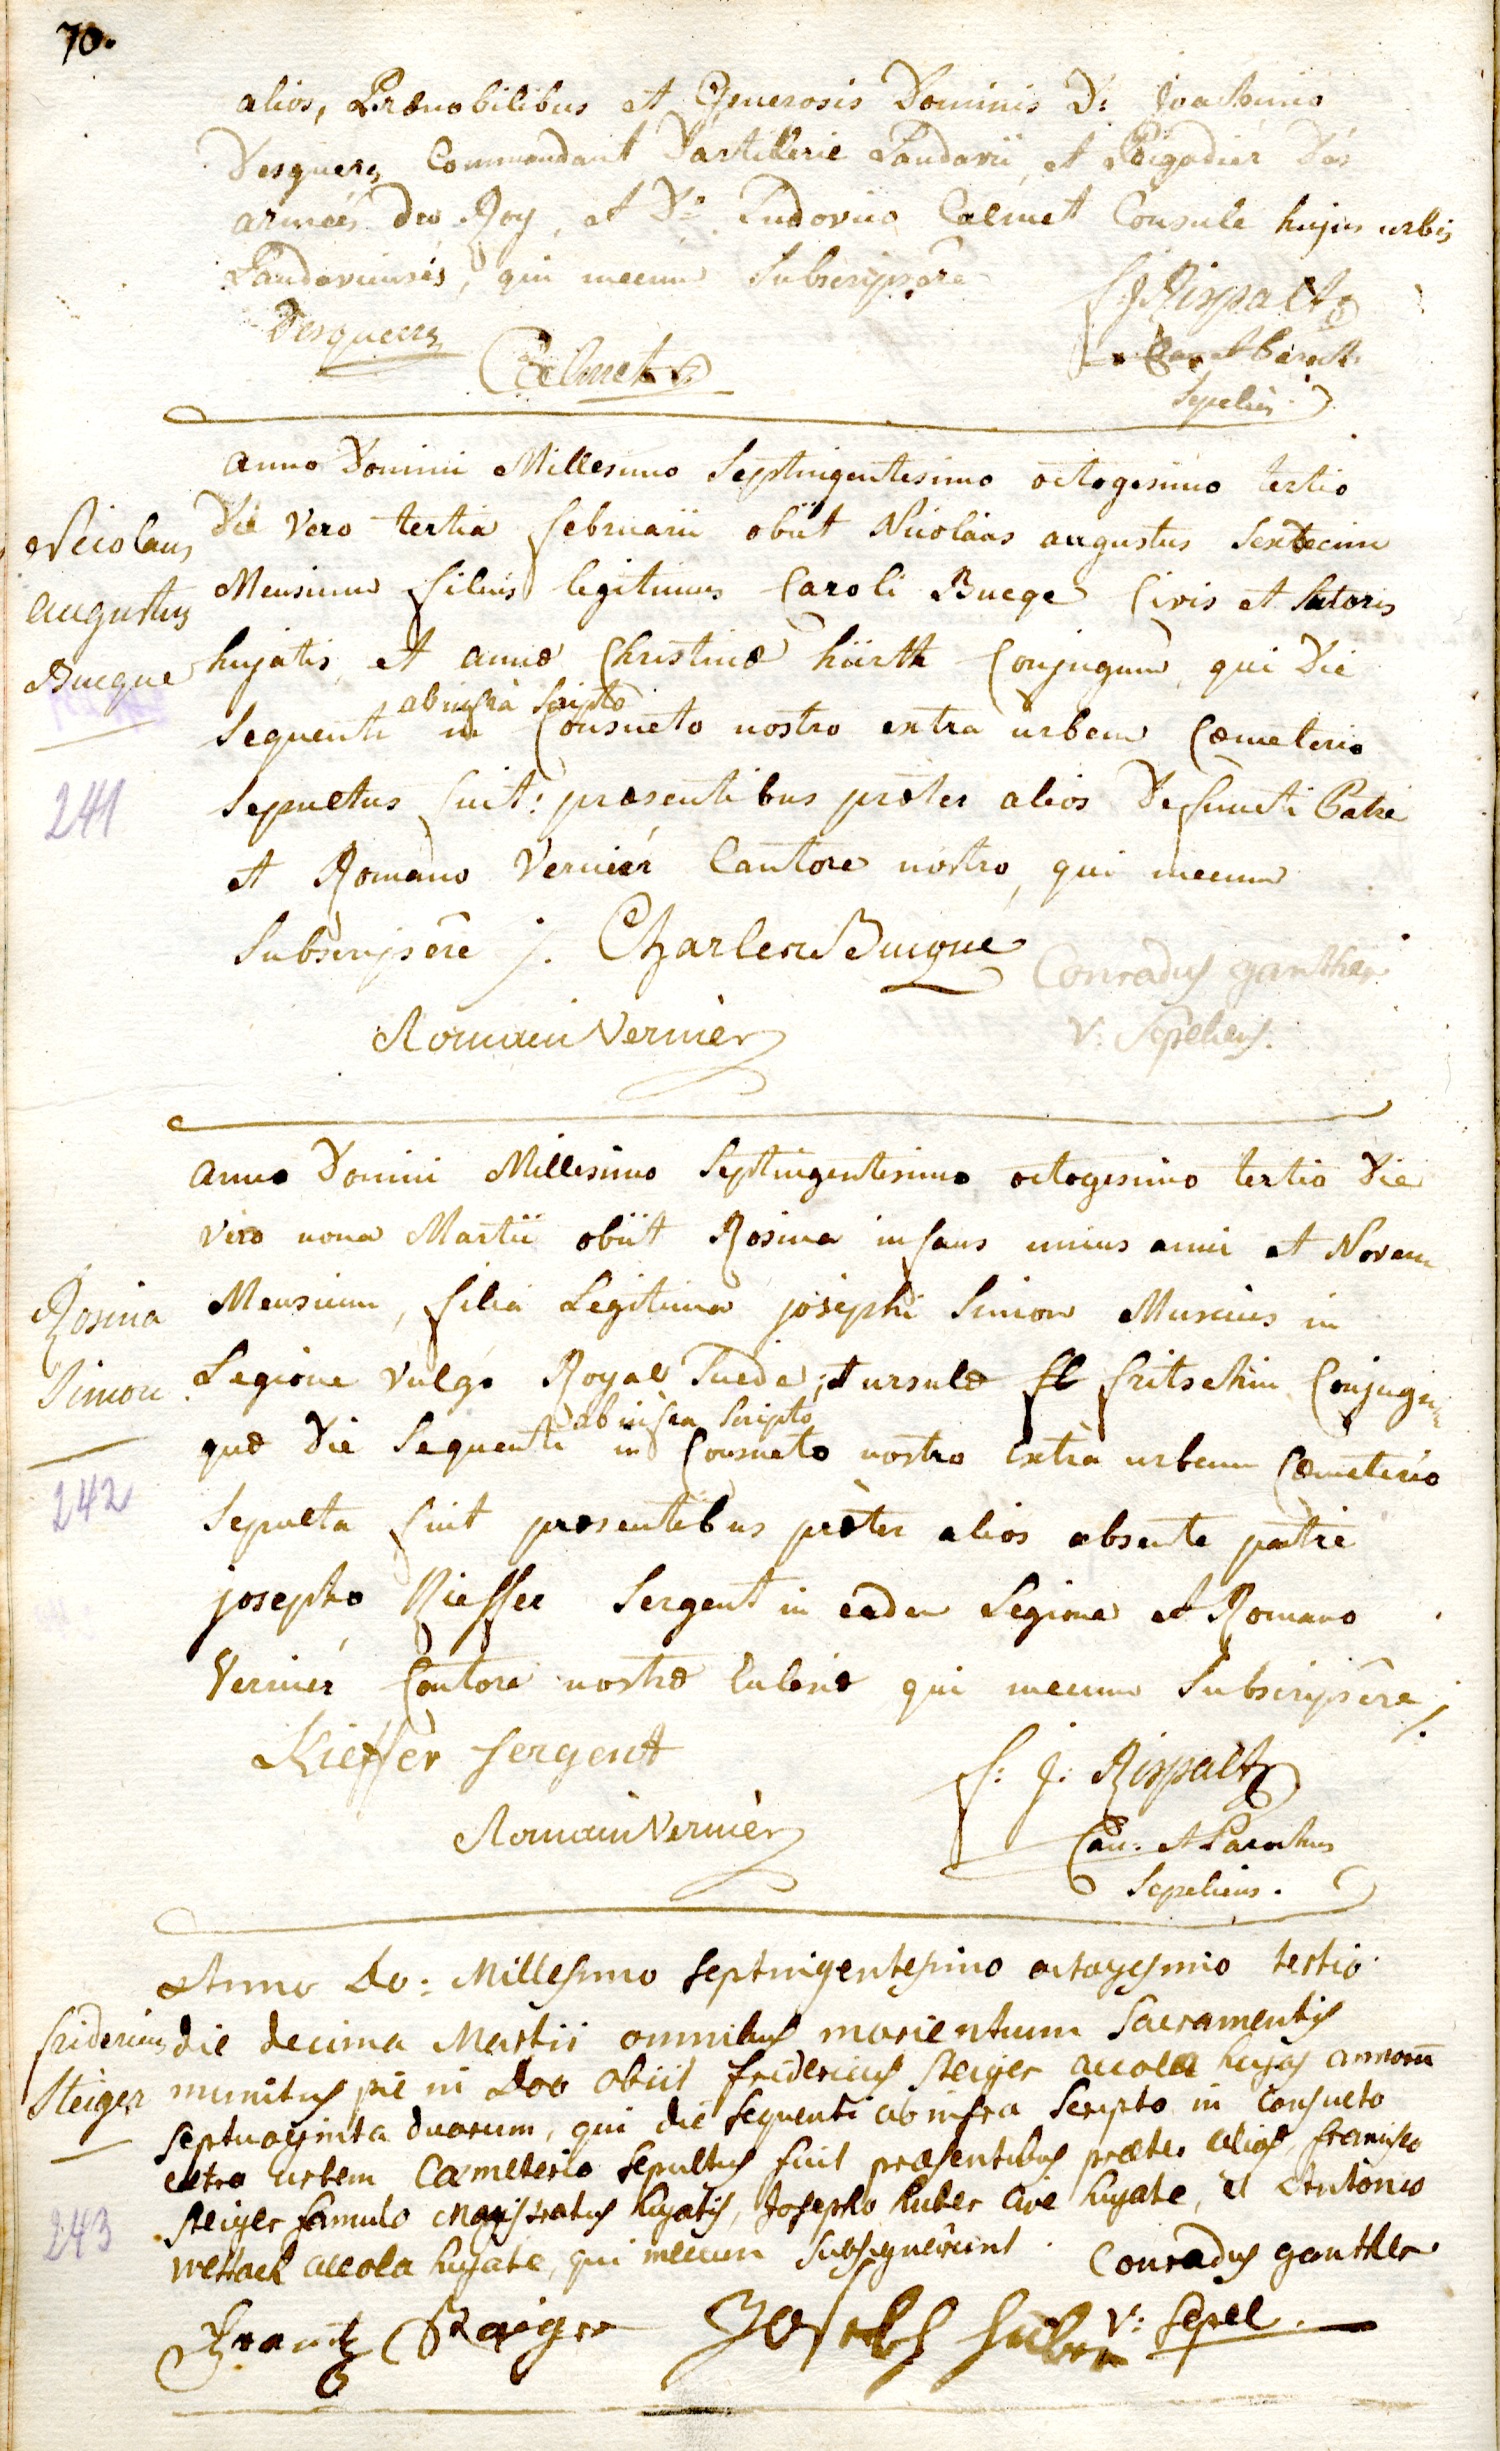 70.
alios, Prænobilibus et Generosis Dominis D: Joachimo
Desquers Commendant Dartillerie Landavii, et Brigadier Des
armées du Roy, et D: Ludovico Calmet Consule hujus urbis
Landaviensis, qui mecum Subscripsere
Desqueers
Calmet
f. J. Rispalt
Can. et Paroch.
Sepeliens.
Anno Domini Millesimo Septingentesimo octogesimo tertio
Die Vero tertia februarii obiit Nicolaus augustus Sexdecim
Mensium filius legitimus Caroli Bucqe Civis et Sutoris
hujatis, et annæ Christinæ hürth Conjugum, qui Die
ab infra Scripto
Sequenti in Consueto nostro extra urbem Cœmeterio
Sepultus fuit: præsentibus præter alios Defuncti Patre
et Romano Vernier Cantore nostro, qui mecum
Subscripsêre /.
Nicolaus
augustus
Bucque
241
Charles Bucque
Conradus ganther
V. Sepeliens.
Romain Vernier
Anno Domini Millesimo Septingentesimo octogesimo tertio Die
Vero nona Martii obiit Rosina infans unius anni et Novem
Mensium, filia Legitima josephi Simon Muscius in
Legione vulgo Royal Suede, et ursulæ fl fritschin Conjugu
ab infra Scripto
quæ Die Sequenti in Consueto nostro extra urbem Cœmeterio
Sepulta fuit præsentibus præter alios absente patre
josepho Kieffer Sergent in eadem Legione et Romano
Vernier Cantore nostræ Ecclesiæ qui mecum Subscripsêre /.
Rosina
Simon
242
Kieffer Sergent
f: J: Rispalt
Romain Vernier
Can. et Parochus
Sepeliens.
Anno Do: Millesimo Septingentesimo octogesimo tertio
die decima Martii omnibus morientium Sacramentis
munitus pie in Dno obiit fridericus Steiger accola hujas annorum
septuaginta duorum, qui die sequenti ab infra Scripto in Consueto
extra urbem Cœmeterio Sepultus fuit præsentibus præter alios, francisco
Steiger famulo Magistratus hujatis, Josepho huber Cive hujate, et Antonio
Wettach accola hujate, qui mecum Subsignârunt.
fridericus
Steiger
243
Conradus ganther
V: Sepel.
Frantz Staiger
Joseph huber